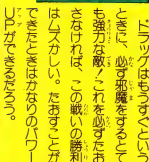 ドラッグはもうすぐという
ときに、必ず邪魔をすると
も強力な敵！これを必ずたお
さなければ、この戦いの勝利
はムズかしい。たおすことが
できたときはかなりのパワー
UPができるだろう。